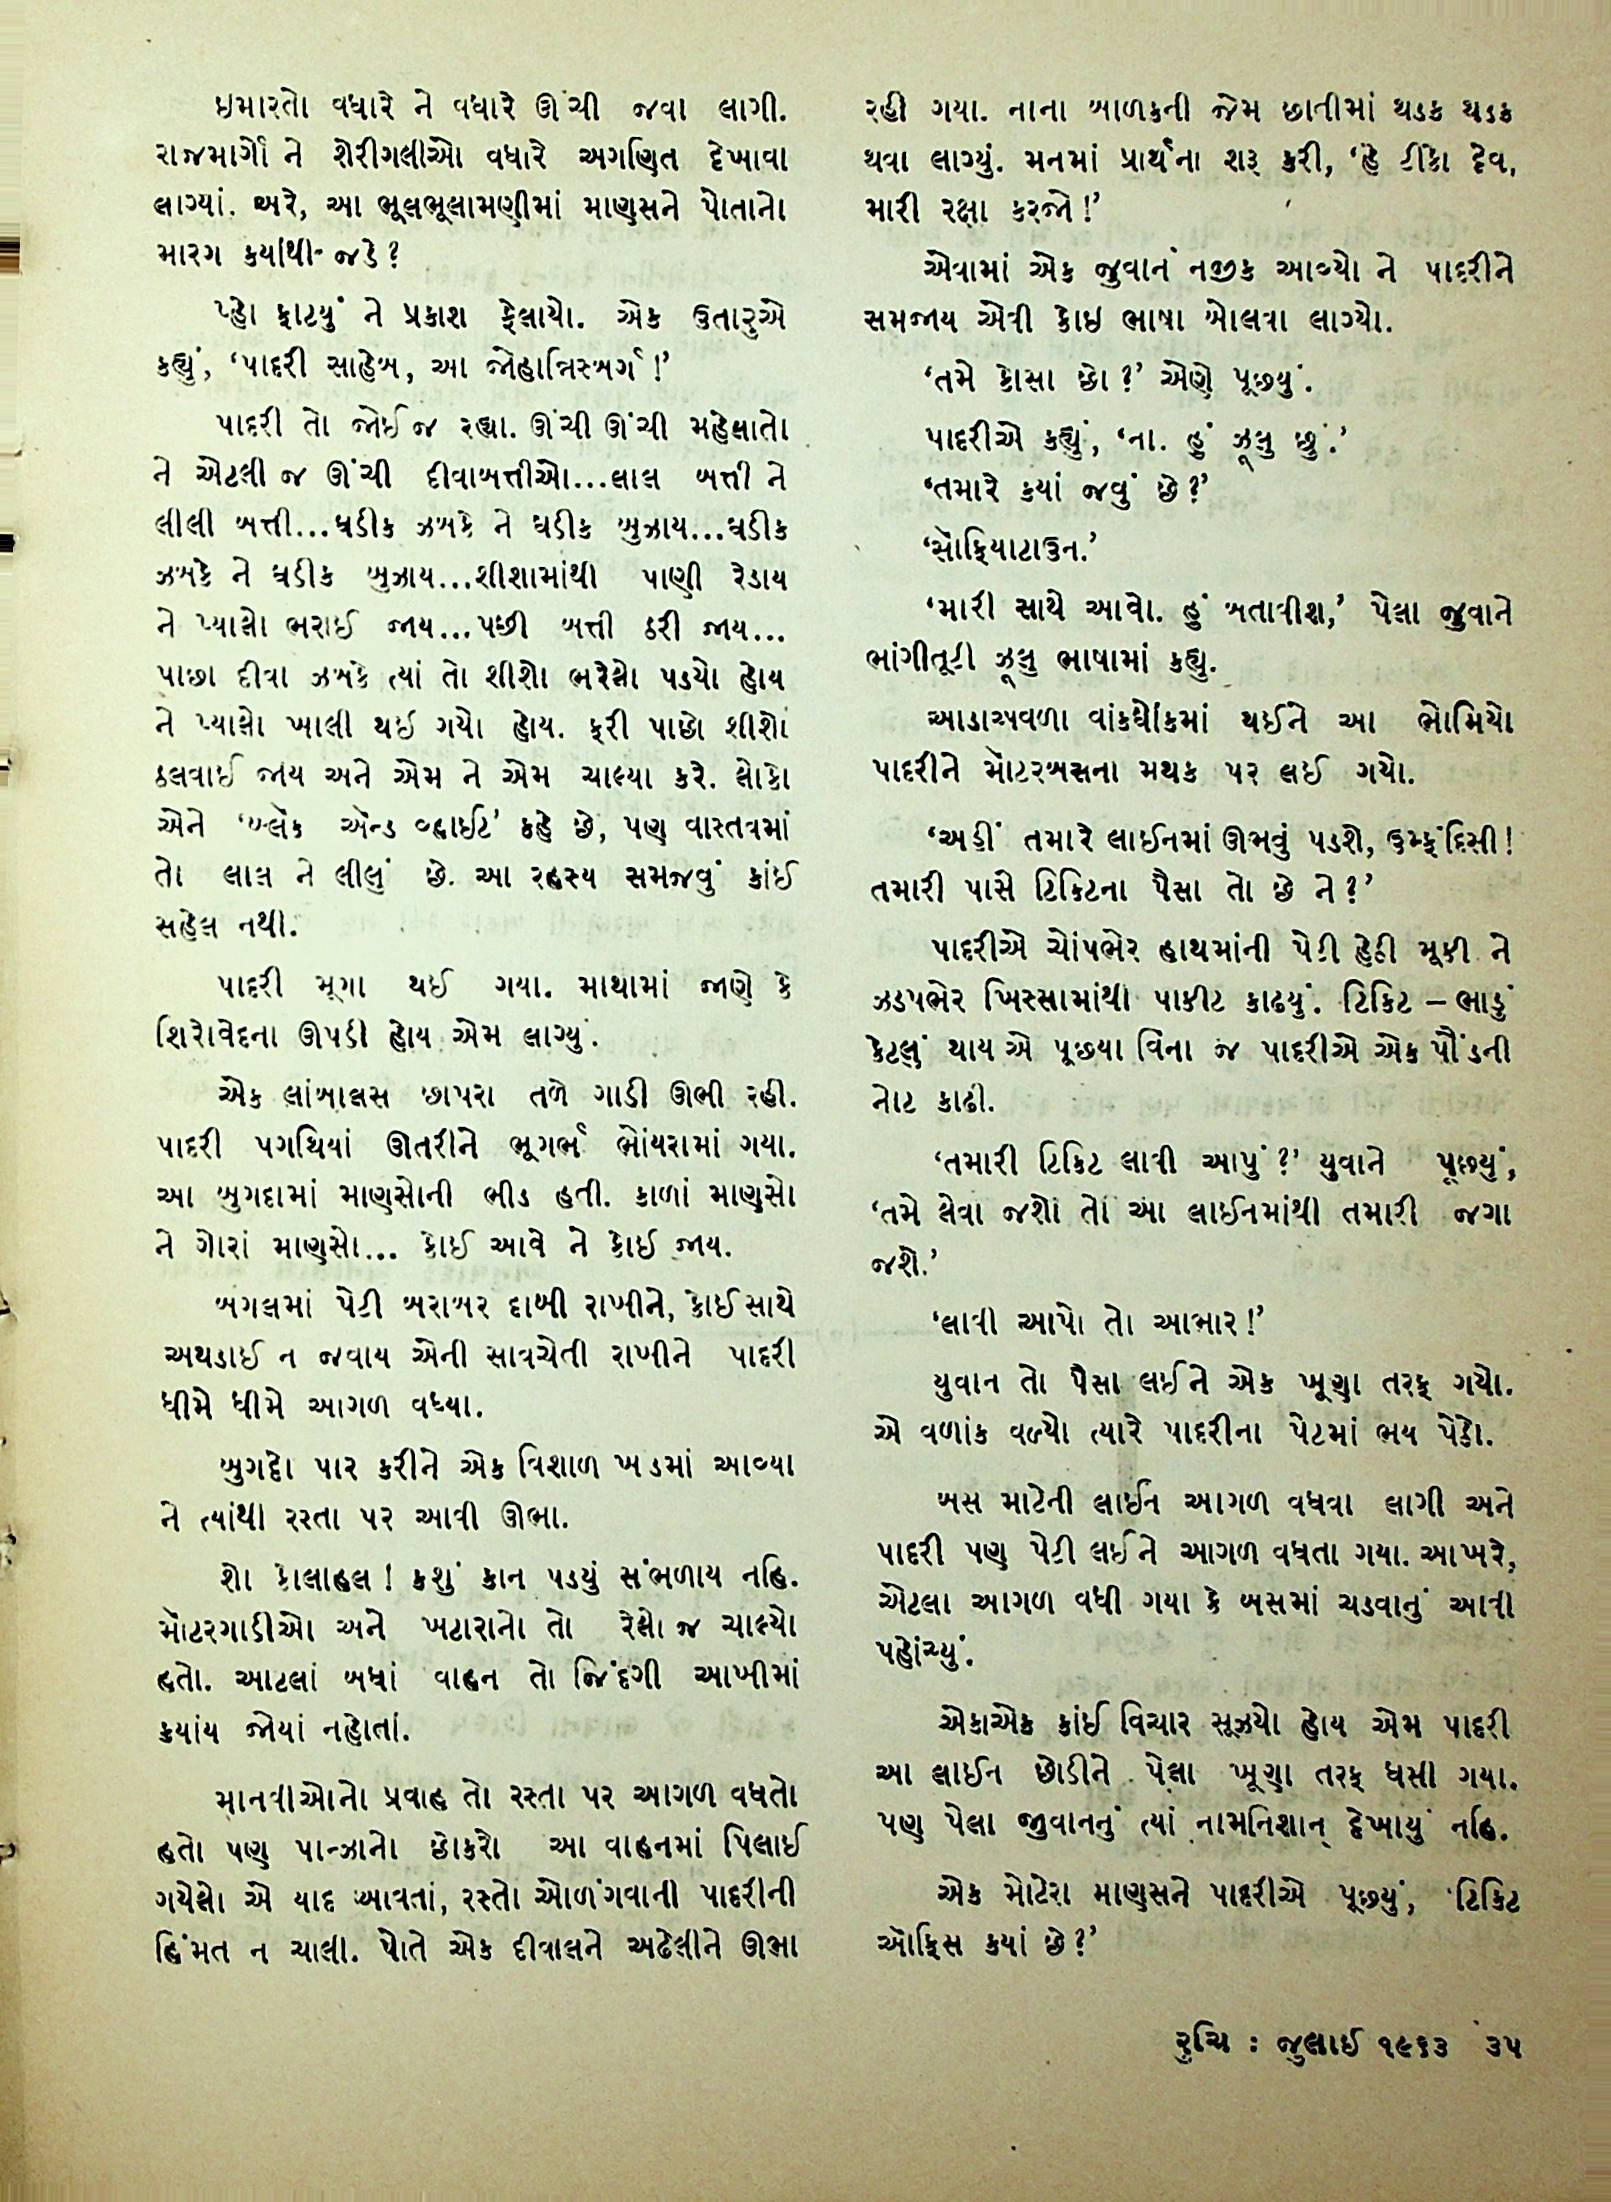 ઇમારતો વધારે ને વધારે ઊંચી જવા લાગી.
રાજમાર્ગો ને શેરીગલીઓ વધારે અગણિત દેખાવા
લાગ્યાં. અરે, આ ભૂલભૂલામણીમાં માણસને પોતાનો
મારગ કયાંથી જડે?
પ્હો ફાટયું ને પ્રકાશ ફેલાયો. એક ઉતારુએ
કહ્યું, ‘પાદરી સાહેબ, આ જોહાન્નિસ્બર્ગ !’
પાદરી તો જોઈ જ રહ્યા. ઊંચી ઊંચી મહેલાતો
ને એટલી જ ઊંચી દીવાબત્તીઓ...લાલ બત્તી ને
લીલી બત્તી...ઘડીક ઝબકે ને ઘડીક બુઝાય...ઘડીક
ઝબકે ને ઘડીક બુઝાય...શીશામાંથી પાણી રેડાય
ને પ્યાલો ભરાઈ જાય...પછી બત્તી ઠરી જાય...
પાછા દીવા ઝબકે ત્યાં તો શીશો ભરેલો પડયો હોય
ને પ્યાલો ખાલી થઈ ગયો હોય. ફરી પાછો શીશો
ઠલવાઈ જાય અને એમ ને એમ ચાલ્યા કરે. લોકો
એને ‘બ્લૅક ઍન્ડ વ્હાઈટ’ કહે છે, પણ વાસ્તવમાં
તો લાલ ને લીલું છે. આ રહસ્ય સમજવું કાંઈ
સહેલ નથી.
પાદરી મૂગા થઈ ગયા. માથામાં જાણે કે
શિરોવેદના ઊપડી હોય એમ લાગ્યું.
એક લાંબાલસ છાપરા તળે ગાડી ઊભી રહી.
પાદરી પગથિયાં ઊતરીને ભૂગર્ભ ભોંયરામાં ગયા.
આ બુગદામાં માણસોની ભીડ હતી. કાળાં માણસો
ને ગોરાં માણસો... કોઈ આવે ને કોઈ જાય.
બગલમાં પેટી બરાબર દાબી રાખીને, કોઈ સાથે
અથડાઈ ન જવાય એની સાવચેતી રાખીને પાદરી
ધીમે ધીમે આગળ વધ્યા.
બુગદો પાર કરીને એક વિશાળ ખડમાં આવ્યા
ને ત્યાંથી રસ્તા પર આવી ઊભા.
શો કોલાહલ ! કશું કાન પડયું સંભળાય નહિ.
મૉટરગાડીઓ અને ખટારાનો તો રેલો જ ચાલ્યો
હતો. આટલાં બધાં વાહન તો જિંદગી આખીમાં
કયાંય જોયાં નહોતાં.
માનવીઓનો પ્રવાહ તો રસ્તા પર આગળ વધતો
હતો પણ પાન્ઝાનો છોકરો આ વાહનમાં પિલાઈ
ગયેલો એ યાદ આવતાં, રસ્તો ઓળંગવાની પાદરીની
હિંમત ન ચાલી. પોતે એક દીવાલને અઢેલીને ઊભા
રહી ગયા. નાના બાળકની જેમ છાતીમાં થડક થડક
થવા લાગ્યું. મનમાં પ્રાર્થના શરૂ કરી, ‘હે ટીકો દેવ,
મારી રક્ષા કરજો !’
એવામાં એક જુવાન નજીક આવ્યો ને પાદરીને
સમજાય એવી કોઇ ભાષા બોલવા લાગ્યો.
‘તમે કોસા છો ?’ એણે પૂછયું.
પાદરીએ કહ્યું, ‘ના. હું ઝૂલુ છું.’
‘તમારે કયાં જવું છે ?’
‘સૉફિયાટાઉન.’
‘મારી સાથે આવો. હું બતાવીશ,’ પેલા જુવાને
ભાંગીતૂટી ઝૂલુ ભાષામાં કહ્યુ.
આડાઅવળા વાંકઘોંકમાં થઈને આ ભોમિયો
પાદરીને મૉટરબસના મથક પર લઈ ગયો.
‘અહીં તમારે લાઈનમાં ઊભવું પડશે, ઉમ્ફુંદિસી !
તમારી પાસે ટિકિટના પૈસા તો છે ને ?’
પાદરીએ ચોંપભેર હાથમાંની પેટી હેઠી મૂકી ને
ઝડપભેર ખિસ્સામાંથી પાકીટ કાઢયું. ટિકિટ – ભાડું
કેટલું થાય એ પૂછયા વિના જ પાદરીએ એક પૌંડની
નોટ કાઢી.
‘તમારી ટિકિટ લાવી આપું ?’ યુવાને પૂછયું,
‘તમે લેવા જશો તો આ લાઈનમાંથી તમારી જગા
જશે.’
‘લાવી આપો તો આભાર !’
યુવાન તો પૈસા લઈને એક ખૂણા તરફ ગયો.
એ વળાંક વળ્યો ત્યારે પાદરીના પેટમાં ભય પેઠો.
બસ માટેની લાઈન આગળ વધવા લાગી અને
પાદરી પણ પેટી લઈને આગળ વધતા ગયા. આખરે,
એટલા આગળ વધી ગયા કે બસમાં ચડવાનું આવી
પહોંચ્યું.
એકાએક કાંઈ વિચાર સૂઝયો હોય એમ પાદરી
આ લાઈન છોડીને પેલા ખૂણા તરફ ધસી ગયા.
પણ પેલા જીવાનનું ત્યાં નામનિશાન દેખાયું નહિ.
એક મોટેરા માણસને પાદરીએ પૂછયું, ‘ટિકિટ
ઑફિસ કયાં છે ?’
રુચિ : જુલાઈ ૧૯૬૩ ૩૫